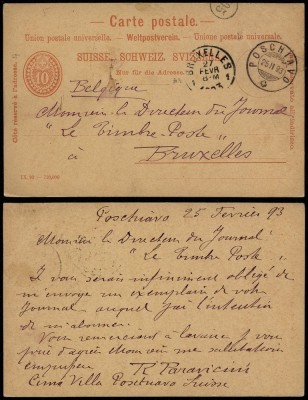 Carte postale.
Union postale universelle. — Weltpostverein. — Unione postale universale.
SUISSE. SCHWEIZ. SVIZZERA.
Nur für die Adresse.
10
BRUXELLES
27
FEVR
1 1
1893
POSCHIAVO
25 II 93
Belgique
Monsieur le Directeur du Journal
" Le Timbre-Poste "
à
Bruxelles
Poschiavo 25 Fevrier 93
Monsieur le Directeur du Journal
" Le Timbre Poste "
Je vous serais infiniment obligé de
m'envoyer un exemplaire de votre
Journal, auquel j'ai l'intention
de m'abonner.
Vous remerciant à l'avance je vous
prie d'agréer Monsieur mes salutations
empressées
R Paravicini
Cima Villa Poschiavo Suisse